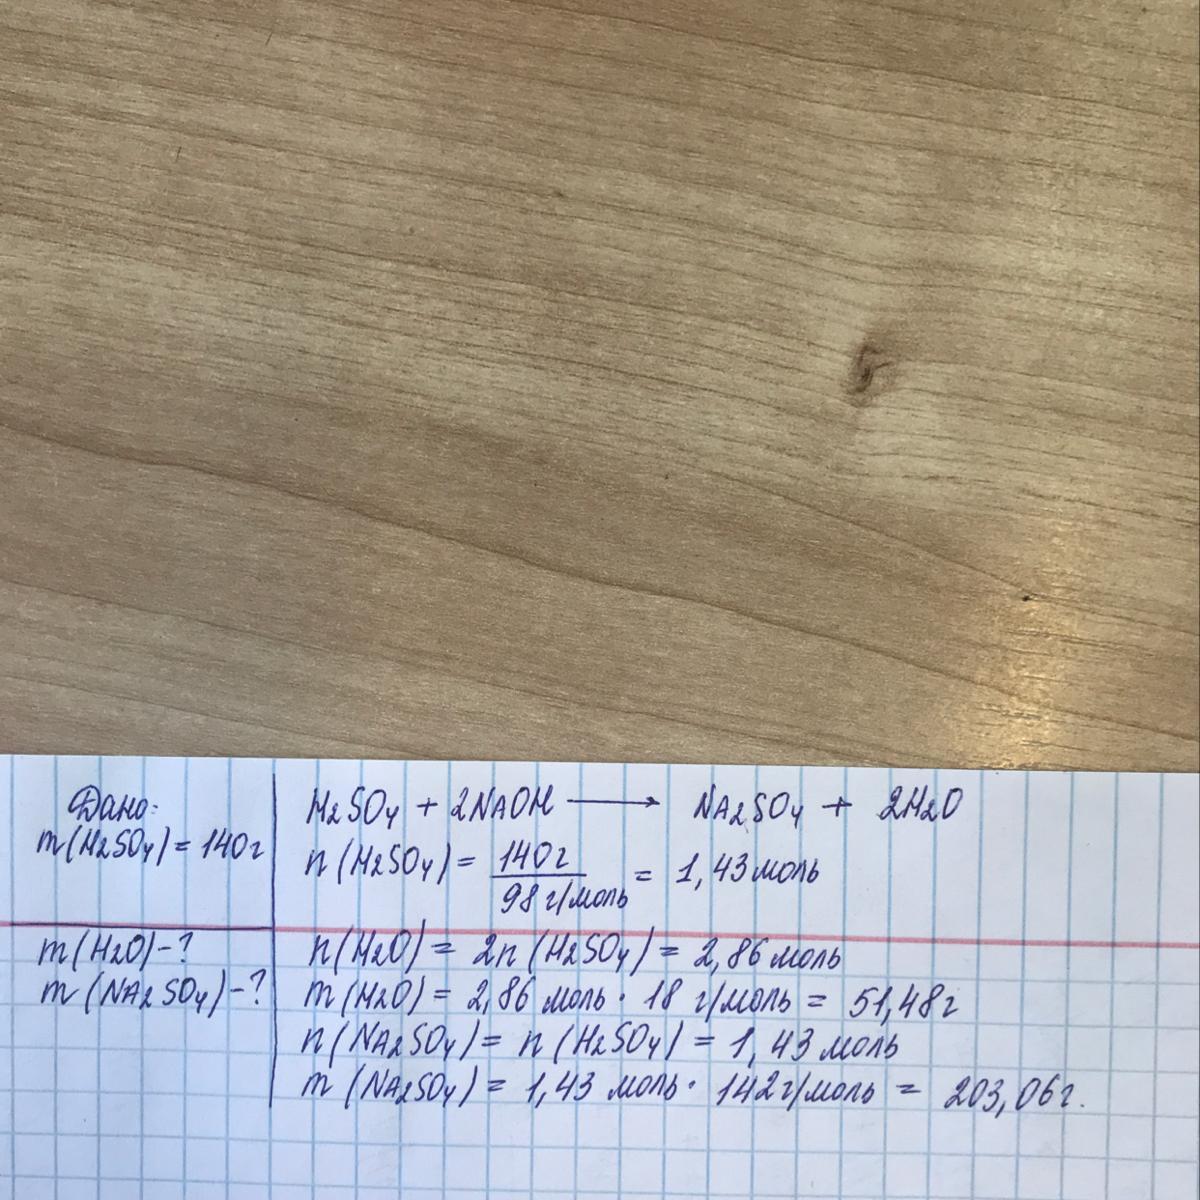 Дано:
m(H2SO4) = 140г
m(H2O) - ?
m(NA2SO4) - ?
H2SO4 + 2NAOH → NA2SO4 + 2H2O
n(H2SO4) = 140г / 98 г/моль = 1,43 моль
n(H2O) = 2n(H2SO4) = 2,86 моль
m(H2O) = 2,86 моль · 18 г/моль = 51,48г
n(NA2SO4) = n(H2SO4) = 1,43 моль
m(NA2SO4) = 1,43 моль · 142г/моль = 203,06г.